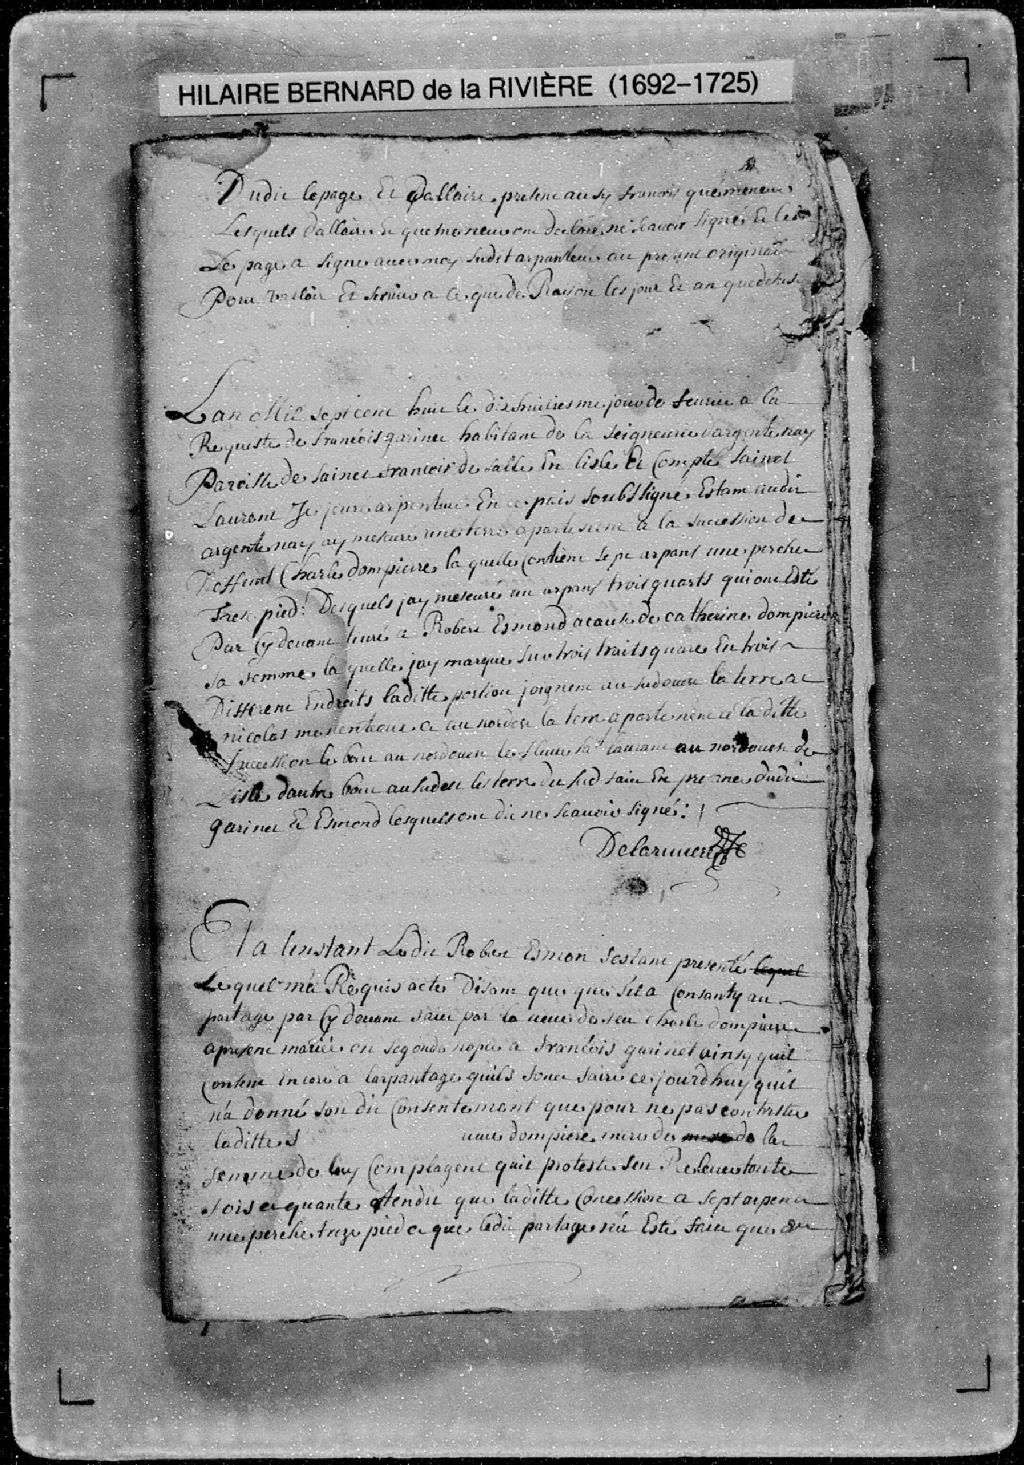 HILAIRE BERNARD de la RIVIÈRE (1692–1725)
Dudit lepage Et dallaire present ausy francois quemeneur
Lesquels dallaire Et quemeneur ont declaré ne scauoir signé Et led
Le page a signe auec moy sudit arpanteur au present originalle
Pour valloir Et seruir a ce que de Raison les jour Et an que dessus
Lan Mil sept cent huit le dixhuitiesme jour de feurier a la
Requeste de francois gariner habitant de la seigneurie dargentenay
Paroisse de sainct francois de salle En lisle Et Compté sainct
Laurent Je jeure arpenteur En ce pais soubssigné Estant audit
argentenay ay mesure une terre apartenent a la succession de
deffunt Charle dompierre la quelle Contient sept arpans une perche
Treze pied: Desquels jay mesuré un arpans trois quarts qui ont Esté
Par Cy deuant liuré a Robert Esmond acause de catherine dompierre
sa femme la quelle jay marque sur trois traits quare En trois
Different Endroits laditte portion joignent au sudouest la terre de
nicolas meslenteur e au nordest la terre apartenent a la ditte
succession le bout au nordouest le fleuue st laurans au nordouest de
Lisle dautre bout au sudest les terre du sud fait En presence dudit
gariner Et Esmond lesquels ont dit ne scauoir signé: /
Delariuiere
Et a linstant Ledit Robert Esmon sestant presenté lequel
Lequel ma Requis acte Disant que que sil a Consanty au
partage par Cy deuant fait par la ueue de feu charle dompierre
apresent mariée en segonde nopce a francois garinet ainsy quil
Consent Encore a larpantage quils font faire ce jourdhuy quil
na donné son dit Consentement que pour ne pas contriste
laditte f ueue dompiere mere de de la
femme de luy Complagent quil proteste sen Releuer toute
fois e quante Atendu que laditte Concession a sept arpens
une perche treze pied e que ledit partage na Esté fait que de